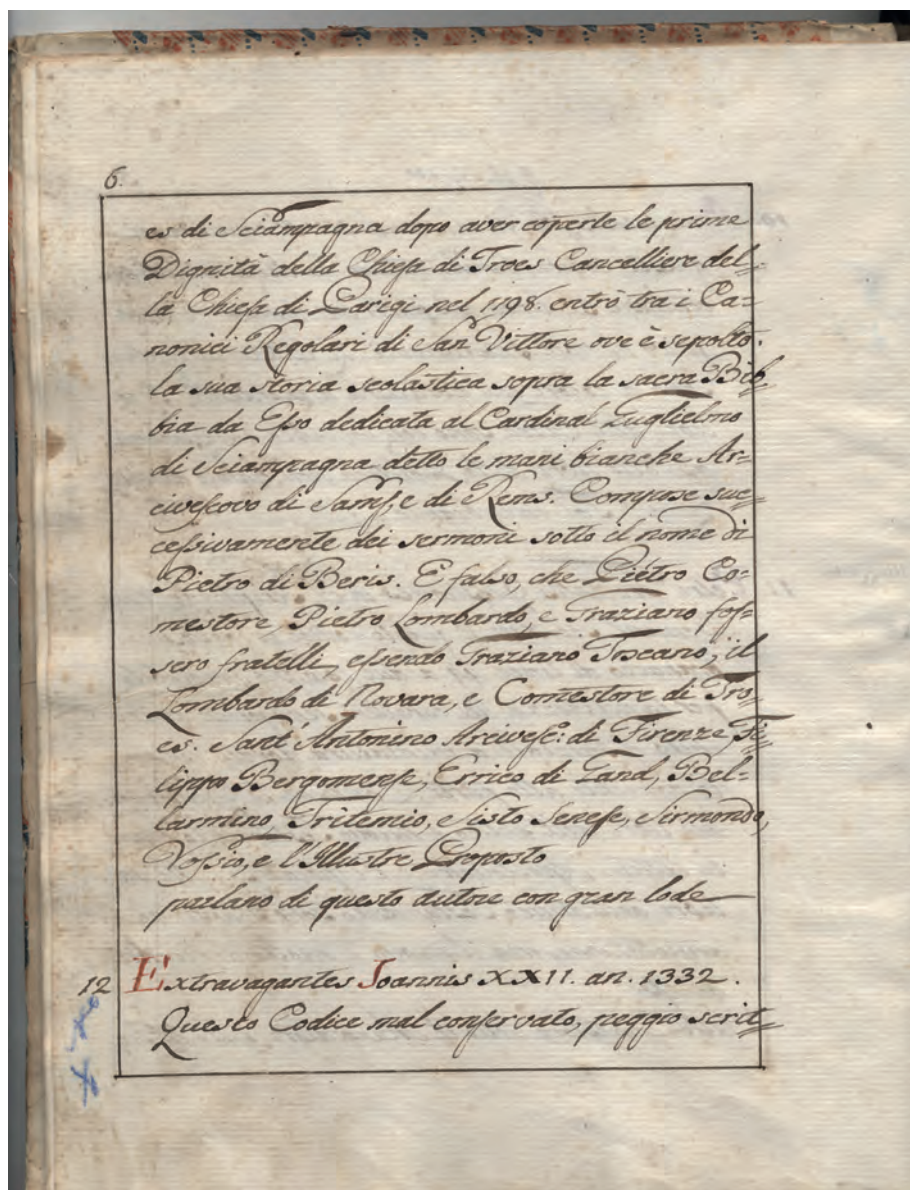 6.
es di Sciampagna dopo aver coperte le prime
Dignità della Chiesa di Troes Cancelliere del=
la Chiesa di Parigi nel 1198. entrò tra i Ca=
nonici Regolari di San Vittore ove è sepolto.
la sua storia scolastica sopra la sacra Bib=
bia da Esso dedicata al Cardinal Guglielmo
di Sciampagna detto le mani bianche Ar=
civescovo di Sans, e di Rems. Compose suc=
cessivamente dei sermoni sotto il nome di
Pietro di Beris. E falso, che Pietro Co=
mestore, Pietro Lombardo, e Graziano fos=
sero fratelli, essendo Graziano Toscano, il
Lombardo di Novara, e Comestore di Tro=
es. Sant' Antonino Arcivesc: di Firenze, Fi=
lippo Bergomense, Errico di Gand, Bel=
larmino, Tritemio, e Sisto Senese, Sirmondo,
Vossio, e l'Illustre Proposto
parlano di questo autore con gran lode
12 Extravagantes Joannis XXII. an. 1332.
Questo Codice mal conservato, peggio scrit=